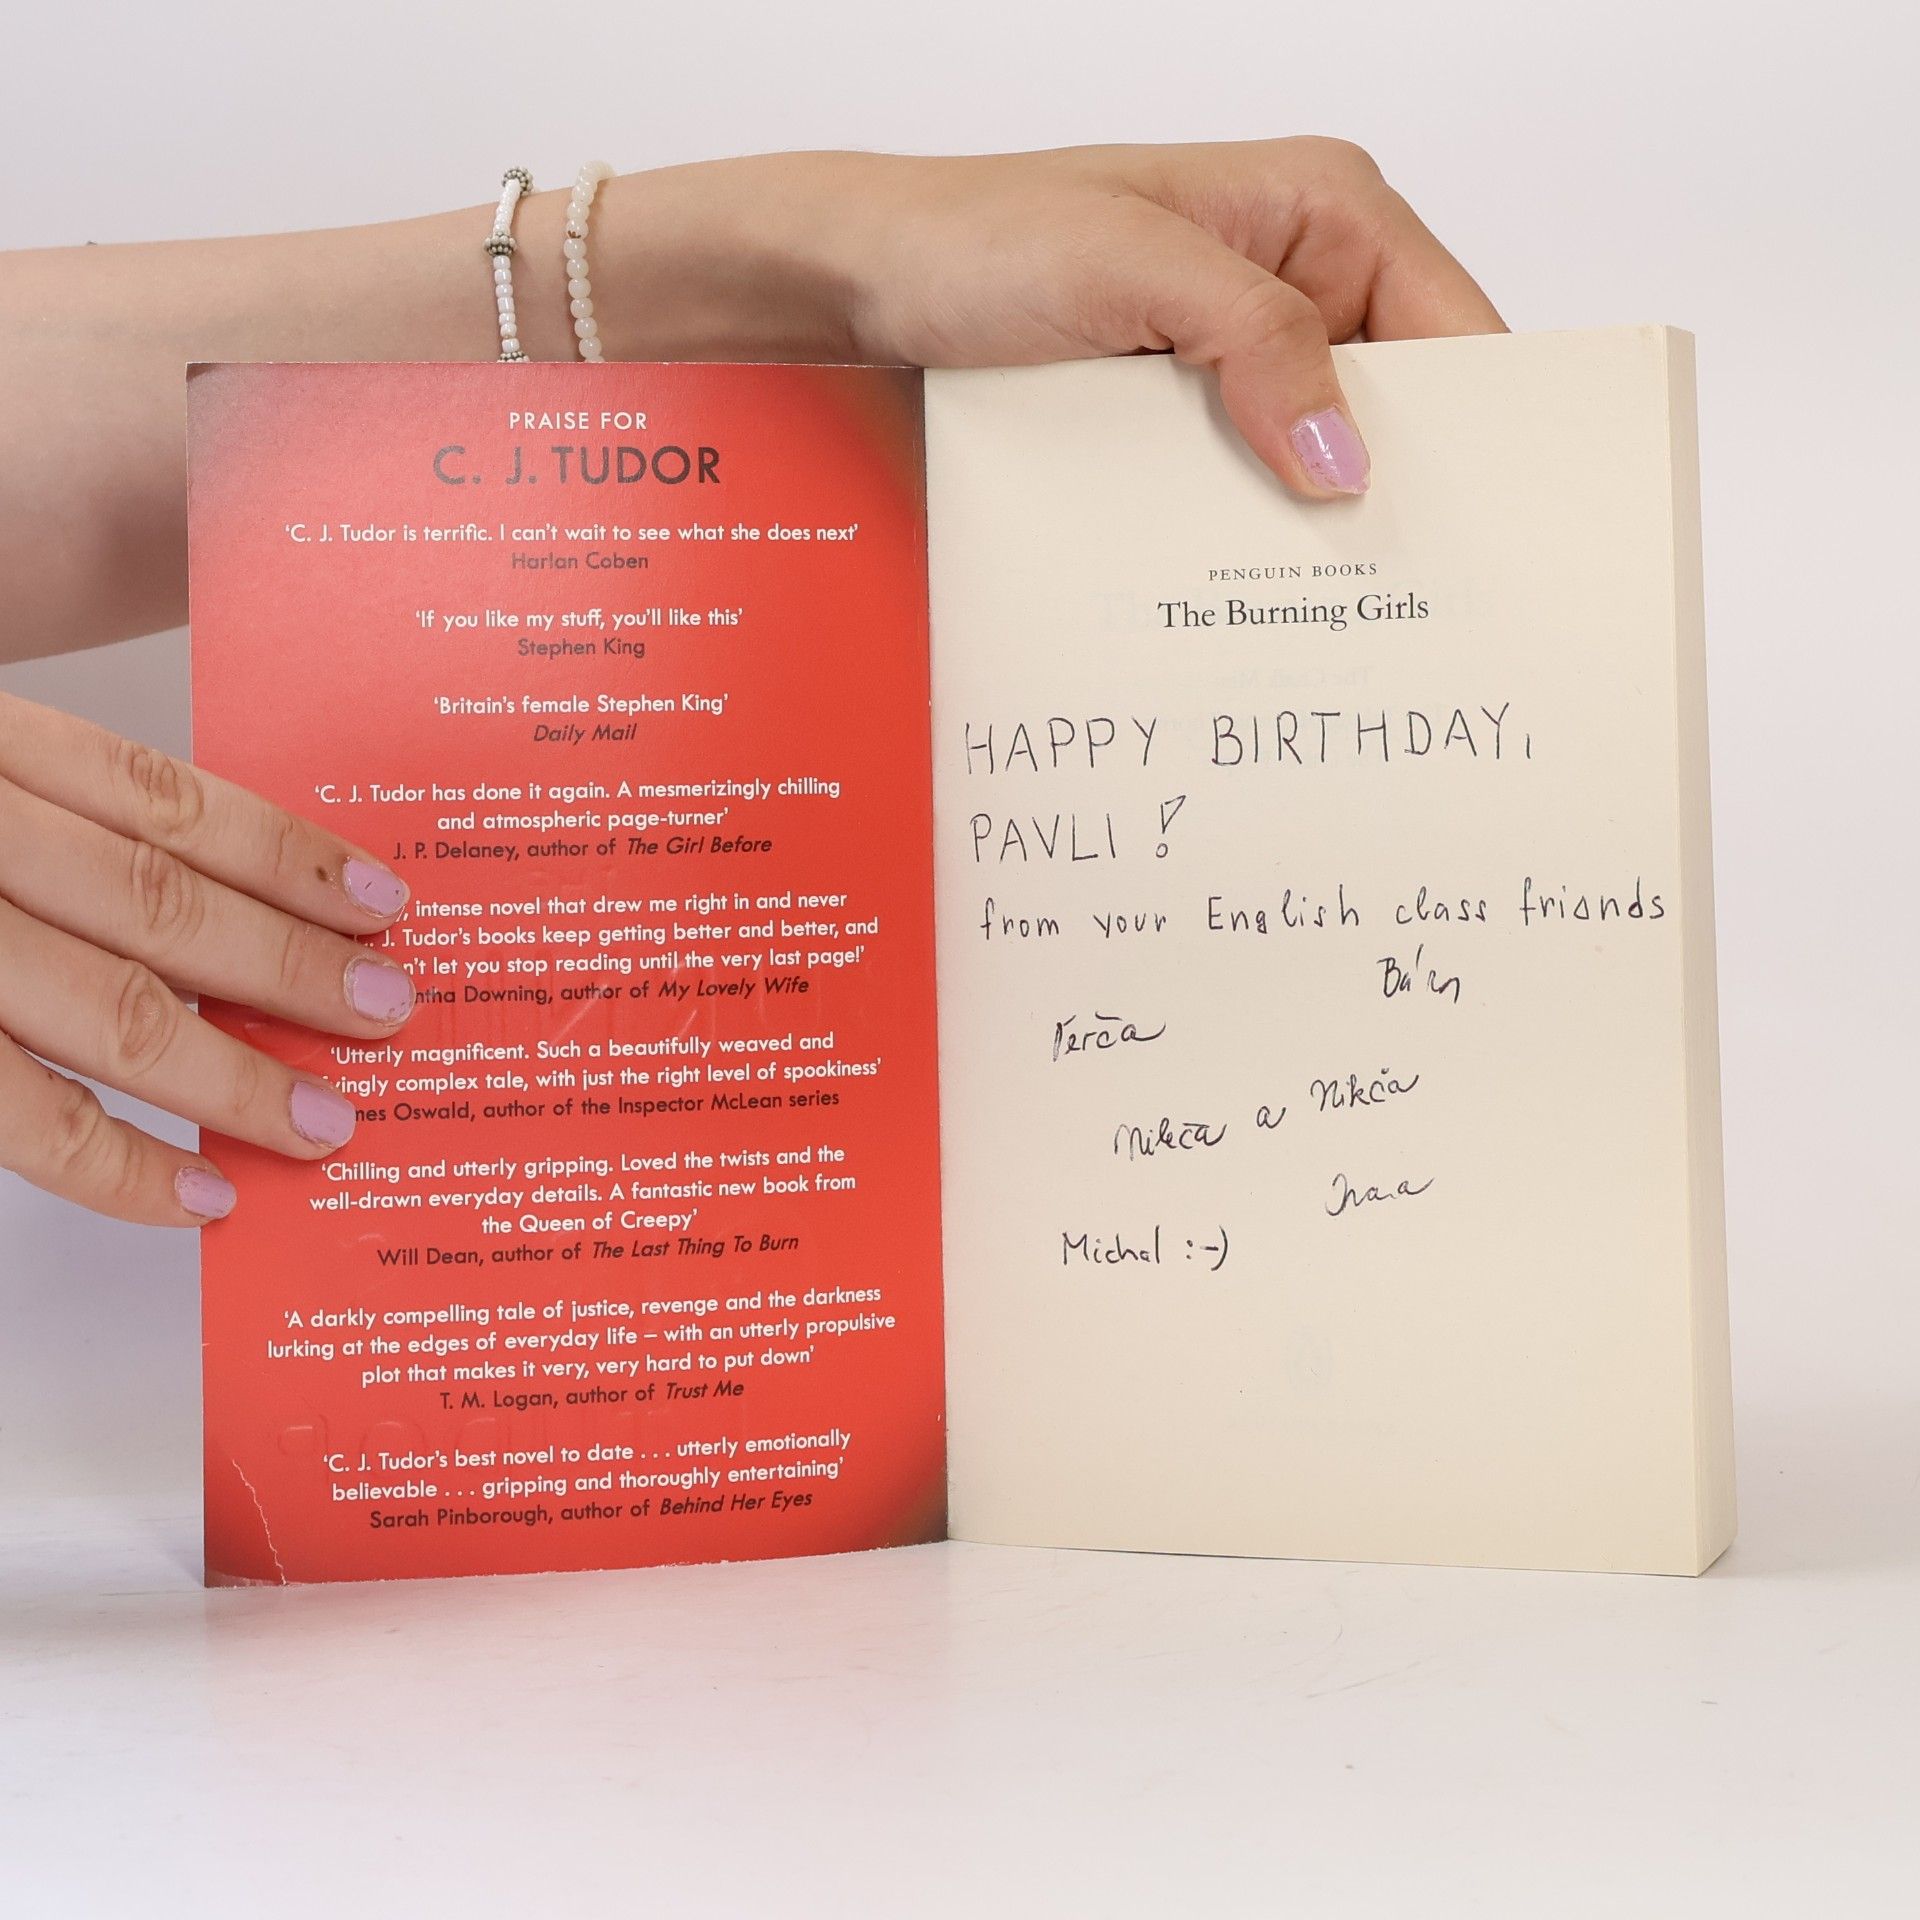 PRAISE FOR
C. J. TUDOR
‘C. J. Tudor is terrific. I can’t wait to see what she does next’
Harlan Coben
‘If you like my stuff, you’ll like this’
Stephen King
‘Britain’s female Stephen King’
Daily Mail
‘C. J. Tudor has done it again. A mesmerizingly chilling
and atmospheric page-turner’
J. P. Delaney, author of The Girl Before
, intense novel that drew me right in and never
J. Tudor’s books keep getting better and better, and
n’t let you stop reading until the very last page!’
ntha Downing, author of My Lovely Wife
‘Utterly magnificent. Such a beautifully weaved and
vingly complex tale, with just the right level of spookiness’
mes Oswald, author of the Inspector McLean series
‘Chilling and utterly gripping. Loved the twists and the
well-drawn everyday details. A fantastic new book from
the Queen of Creepy’
Will Dean, author of The Last Thing To Burn
‘A darkly compelling tale of justice, revenge and the darkness
lurking at the edges of everyday life – with an utterly propulsive
plot that makes it very, very hard to put down’
T. M. Logan, author of Trust Me
‘C. J. Tudor’s best novel to date . . . utterly emotionally
believable . . . gripping and thoroughly entertaining’
Sarah Pinborough, author of Behind Her Eyes
PENGUIN BOOKS
The Burning Girls
HAPPY BIRTHDAY,
PAVLI!
from your English class friends
Verča
Nikča a Nikča
Michal :-)